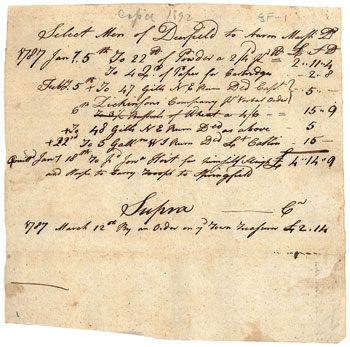 Copied 1892
Select Men of Deerfield to Aaron Dr
1787 Jany 5th To 22lb of Powder a 2/4 pr lb 2..11..4
To 4 of Paper for Cartridges ..2..8
Feby 5th To 47 Gills N E Rum Dd Capt 5..
6th Dickinsons Company pr Verbal order
of Wheat a 4/6 15..9
To 48 Gills N E Rum Dd as above 5
22d To 5 Galls W I Rum Dd Lt Catlin 15
Jany 18th To Jona Hoit for himself Sleigh £4..14..9
and Horse to Carry Troops to Springfield
Supra Cr
1787 March 12th By an Order on ye Town Treasurer £2.14